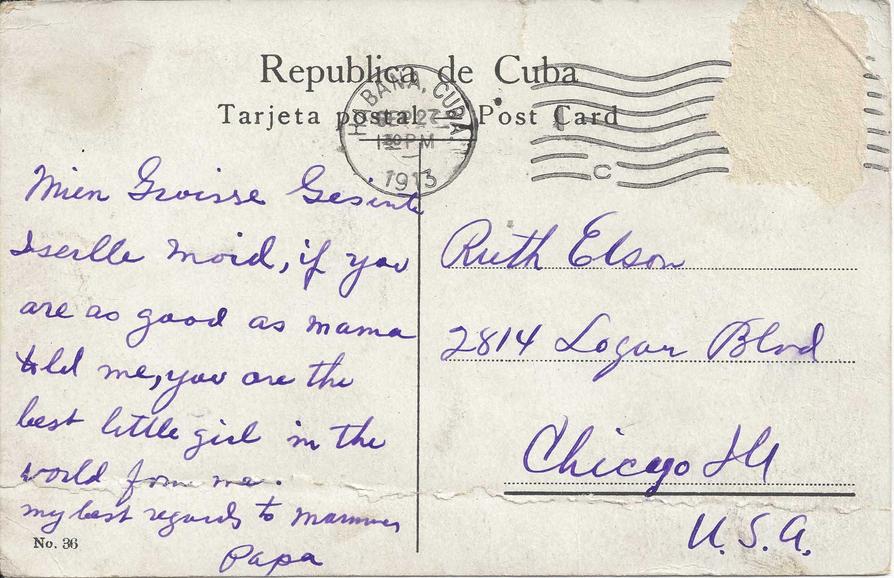 Republica de Cuba
Tarjeta postal — Post Card
HABANA, CUBA.
SEP 27
1 30 PM
1913
C
Mien Groisse Gesinte
Iserlle moid, if you
are as good as mama
told me, you are the
best little girl in the
world for me.
my best regards to mamma
Papa
Ruth Elson
2814 Logan Blvd
Chicago Ill
U. S. A.
No. 36